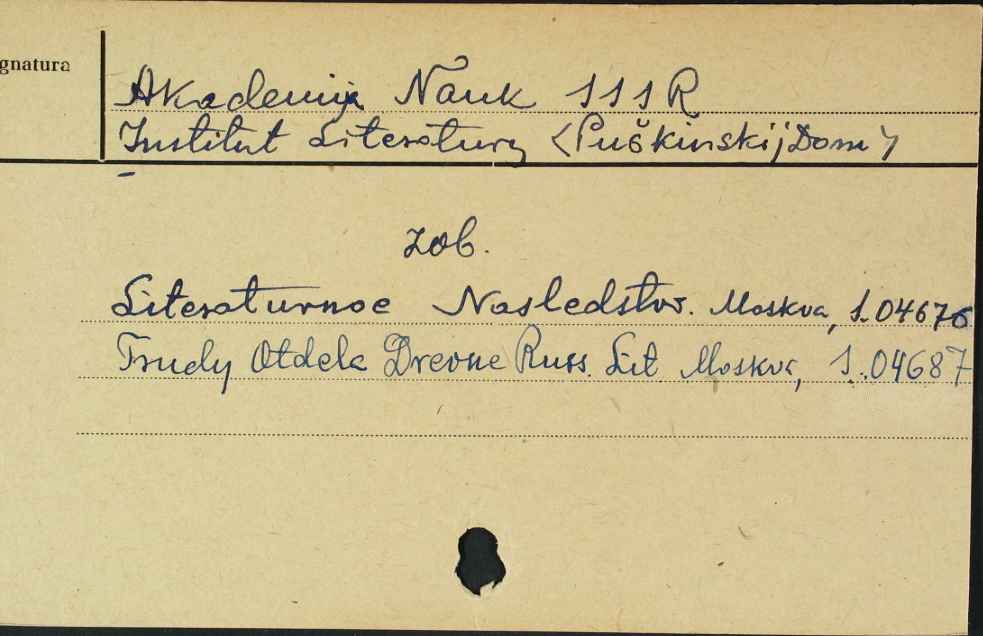 gnatura
Akademija Nauk SSSR
Institut Literatury <Puškinskij Dom>
zob.
Literaturnoe Nasledstvo. Moskva, S.04676
Trudy Otdela Drevne Russ. Lit Moskva, S.04687